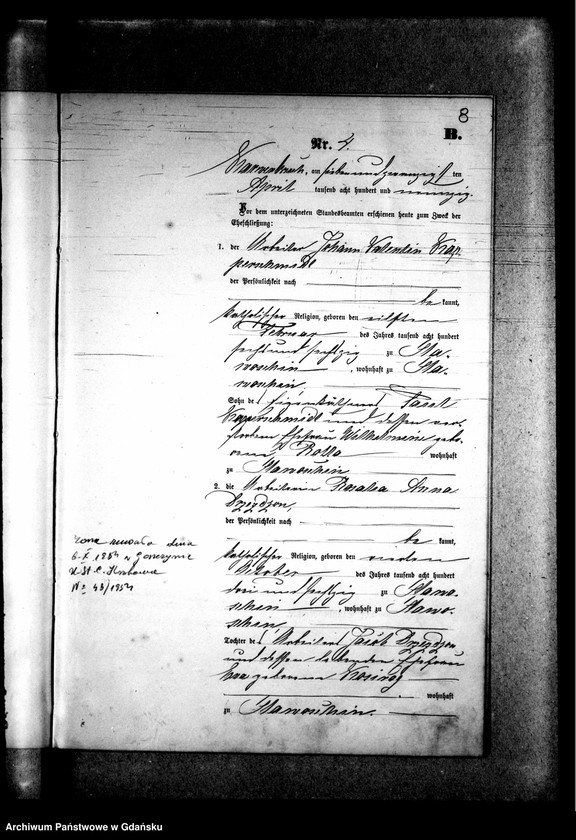 8
B.
Nr. 4.
am siebenundzwanzigsten
April tausend acht hundert und neunzig.
Vor dem unterzeichneten Standesbeamten erschienen heute zum Zweck der
Eheschließung:
1. der Arbeiter Johann Valentin Kap-
perschmidt
der Persönlichkeit nach
be kannt,
katholischer Religion, geboren den eilften
Februar des Jahres tausend acht hundert
sechs und sechszig zu Sla-
woschin, wohnhaft zu Sla-
woschin,
Sohn des
und dessen ver-
storbenen Ehefrau Wilhelmine gebo-
renen wohnhaft
zu Slawoschin
2. die Arbeiterin Rosalia Anna
der Persönlichkeit nach
be kannt,
katholischer Religion, geboren den vierten
Oktober des Jahres tausend acht hundert
drei und sechszig zu Slawo-
schin, wohnhaft zu Slawo-
schin,
Tochter des Arbeiters Jacob
und dessen lebenden Ehefrau
Eva geborenen
wohnhaft
zu Slawoschin.
żona zmarła dnia
6-X 1954 w
U.S.C. Krokowa
Nr 43/1954
Archiwum Państwowe w Gdańsku